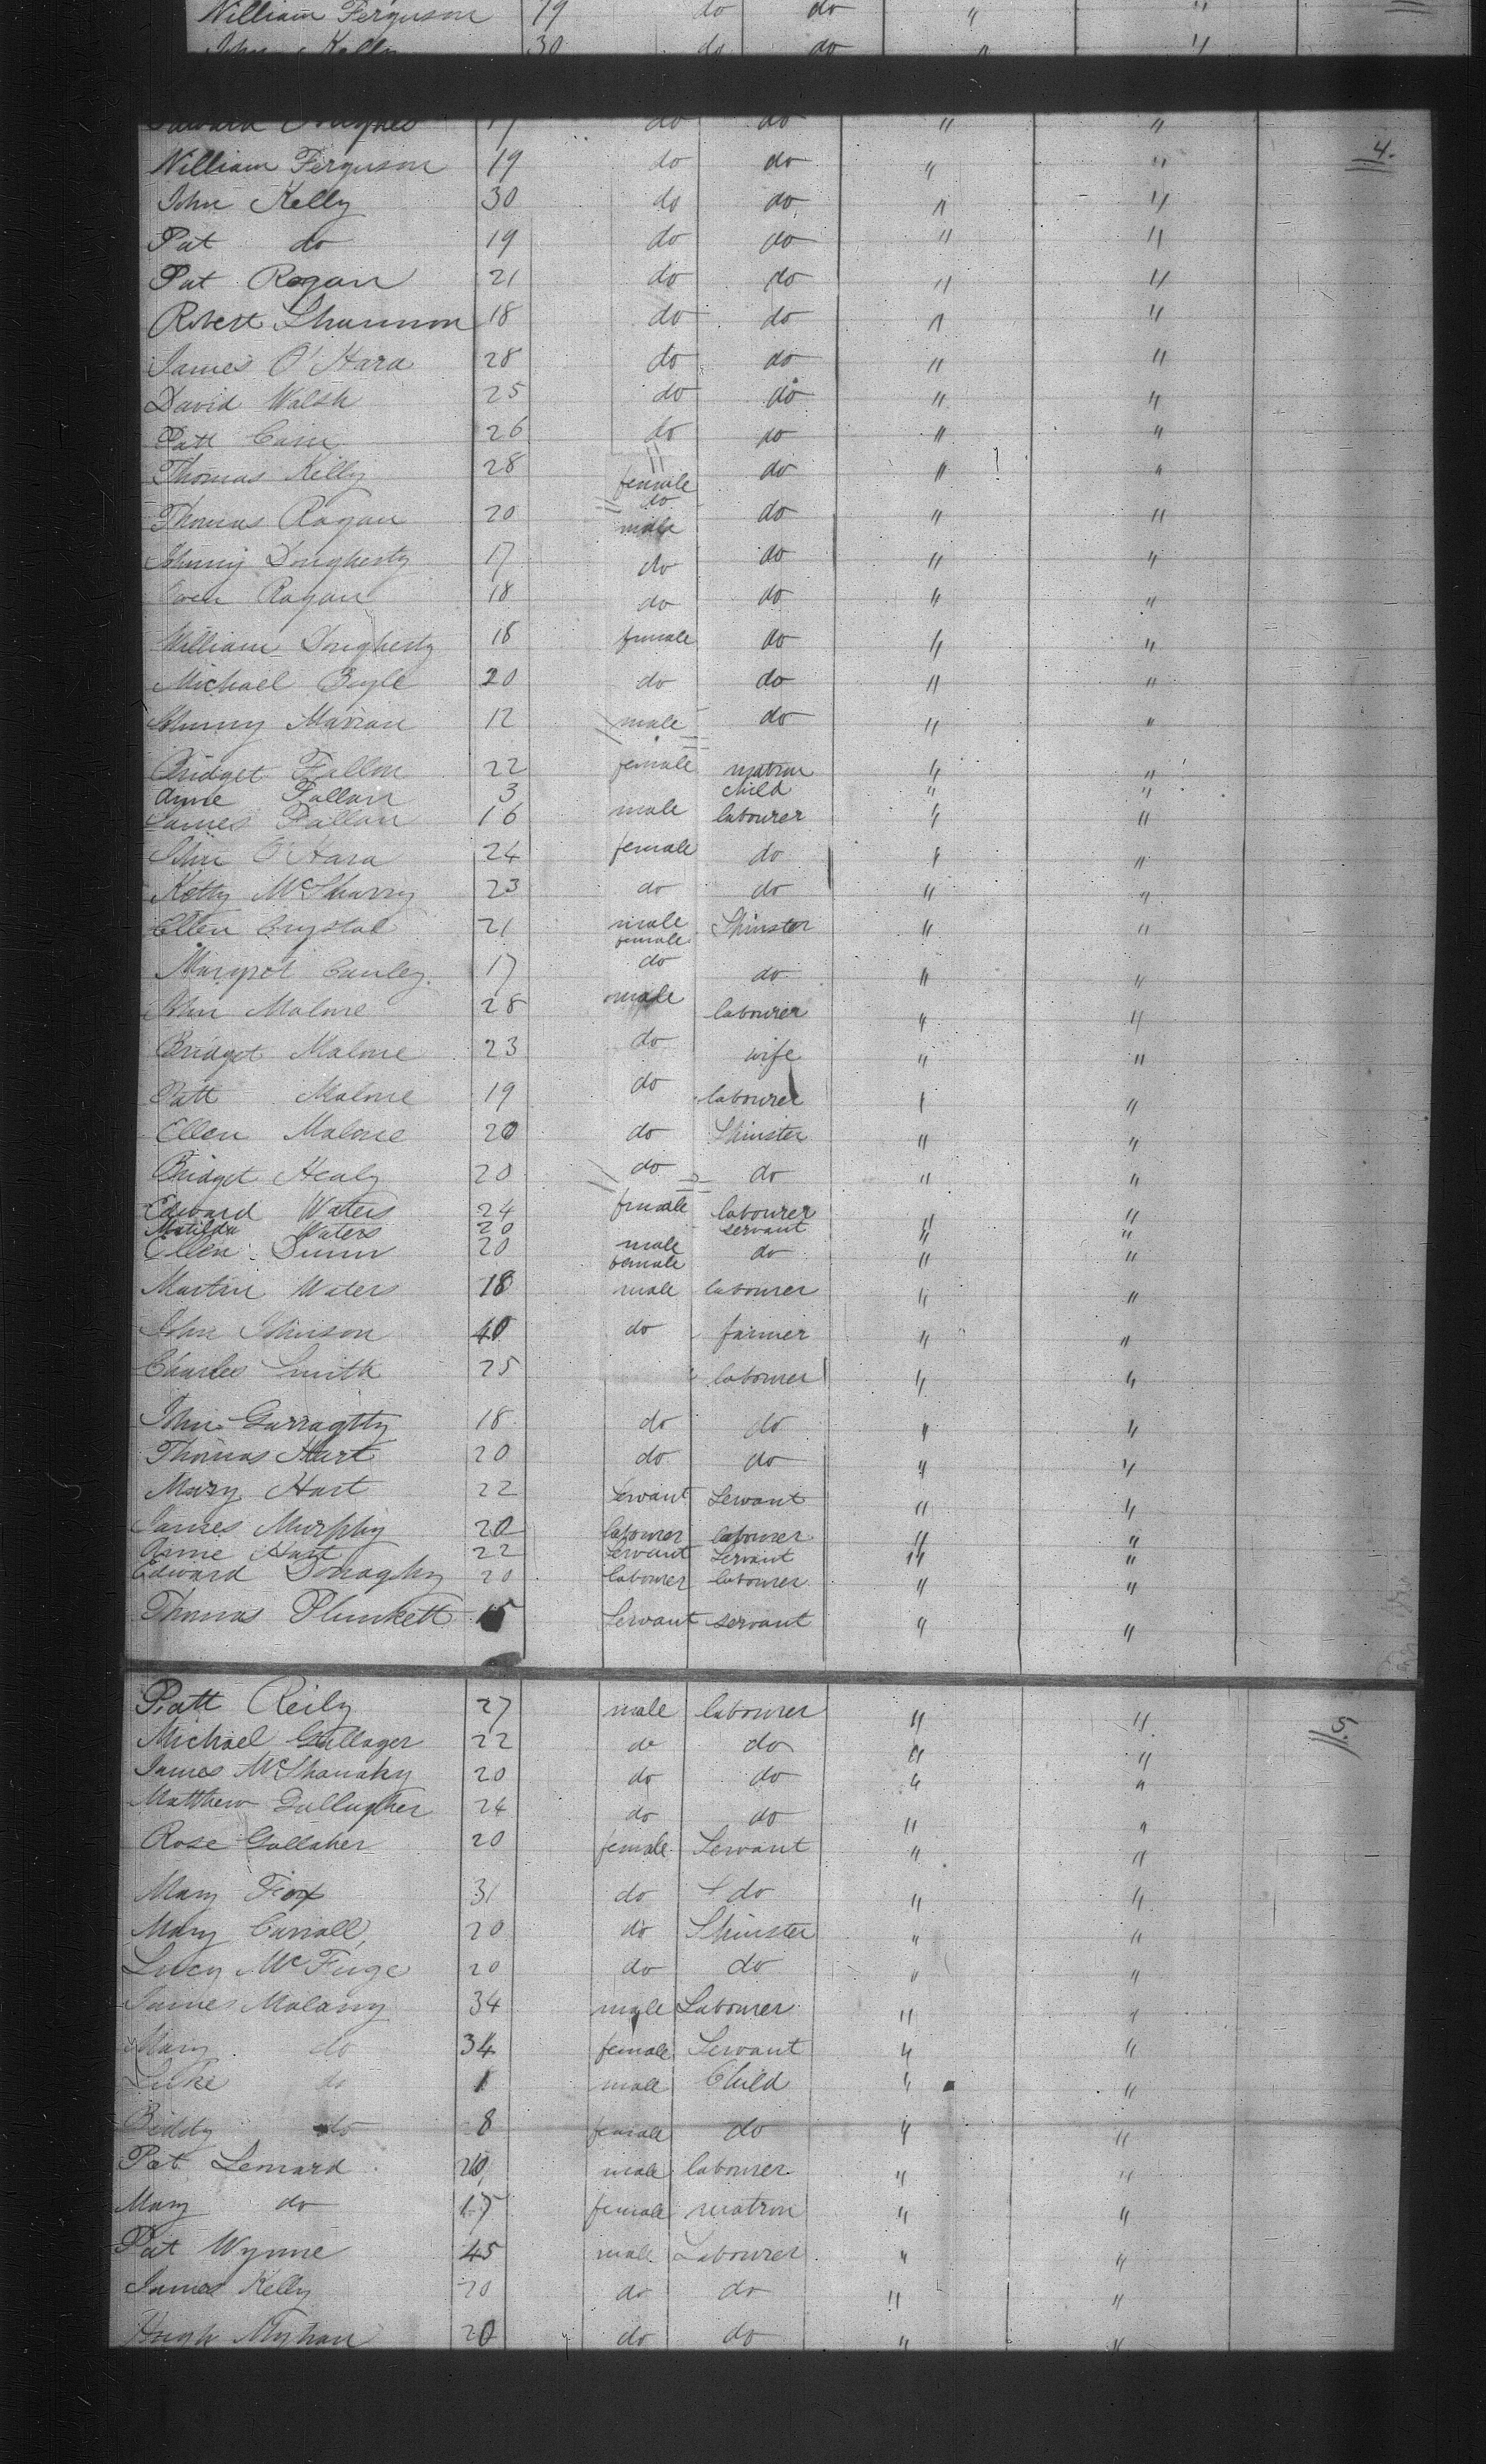 William Ferguson 19 do do " "
John Kelly 30 do do " "
do do " "
William Ferguson 19 do do " " 4.
John Kelly 30 do do " "
Pat do 19 do do " "
Pat Rogan 21 do do " "
Robert Shannon 18 do do " "
James O'Hara 28 do do " "
David Walsh 25 do do " "
Patt Cain 26 do do " "
Thomas Kelly 28 " female do " "
Thomas Ragan 20 do male do " "
Dougherty 17 do do " "
Owen Ragan 18 do do " "
William Dougherty 18 female do " "
Michael Boyle 20 do do " "
12 male do " "
Bridget Fallon 22 female matron " "
Anne Fallon 3 child " "
James Fallon 16 male labourer " "
John O'Hara 24 female do " "
Ketty McSharry 23 do do " "
Ellen Crystal 21 male female Spinster " "
Margret Cauley 17 do do " "
John Malone 28 male labourer " "
Bridget Malone 23 do wife " "
Patt Malone 19 do labourer " "
Ellen Malone 20 do Spinster " "
Bridget Healy 20 do do " "
Edward Waters 24 female labourer " "
Matilda Waters 20 servant " "
Ellen Dunn 20 male female do " "
Martin Waters 18 male labourer " "
John Johnson 40 do farmer " "
Charles Smith 25 labourer " "
John Garraghty 18 do do " "
Thomas Hart 20 do do " "
Mary Hart 22 Servant Servant " "
James Murphy 20 labourer labourer " "
Anne Hart 22 Servant Servant " "
Edward Donaghy 20 labourer labourer " "
Thomas Plunkett 15 Servant servant " "
Patt Reily 27 male labourer " " 5.
Michael Gallager 22 do do " "
James McShanaky 20 do do " "
Matthew Gallagher 24 do do " "
Rose Gallaher 20 female Servant " "
Mary Fox 31 do do " "
Mary Carroll 20 do Spinster " "
Lucy McTeige 20 do do " "
James Malany 34 male Labourer " "
Mary do 34 female Servant " "
Luke do 1 male Child " "
Biddy do 8 female do " "
Pat Lennard 20 male labourer " "
Mary do 17 female matron " "
Pat Wynne 45 male Labourer " "
James Kelly 20 do do " "
Hugh 20 do do " "